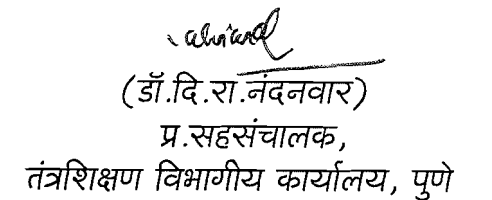 (डॉ.दि.रा.नंदनवार)
प्र.सहसंचालक,
तंत्रशिक्षण विभागीय कार्यालय, पुणे